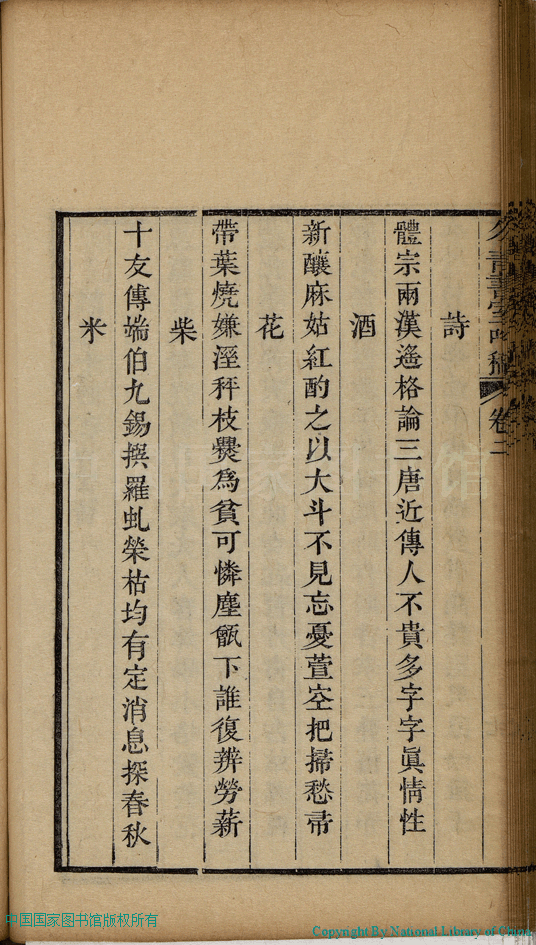 卷二
詩
體宗兩漢遙格論三唐近傳人不貴多字字眞情性
酒
新釀麻姑紅酌之以大斗不見忘憂萱空把掃愁帚
花
帶葉燒嫌溼秤枝爨爲貧可憐塵甑下誰復辨勞薪
柴
十友傳端伯九錫撰羅虬榮枯均有定消息探春秋
米
中国国家图书馆版权所有
Copyright By National Library of China